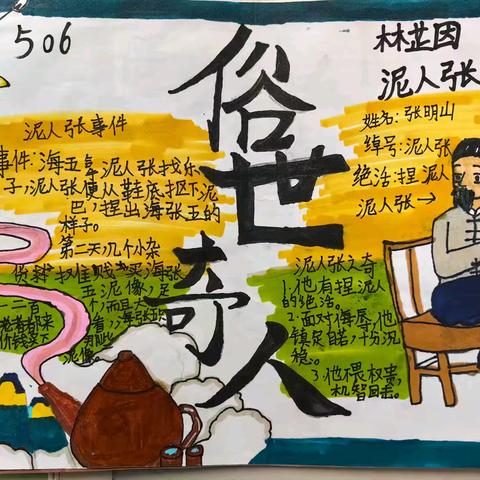 506
俗世奇人
林芷因
泥人张
姓名：张明山
绰号：泥人张
绝活：捏泥人
泥人张→
泥人张事件
事件：海五拿泥人张找乐
子，泥人张便从鞋底抠下泥
巴，捏出海张五的
样子。
第二天，几个小杂
货摊
贱卖海张
五泥像，足
一二百
个，而且大
老者都来
看，海张五
价钱买下
泥像。
泥人张之奇
1.他有捏泥人
的绝活。
2.面对侮辱，他
镇定自若，十分沉
稳。
3.他不畏权贵，
机智回击。